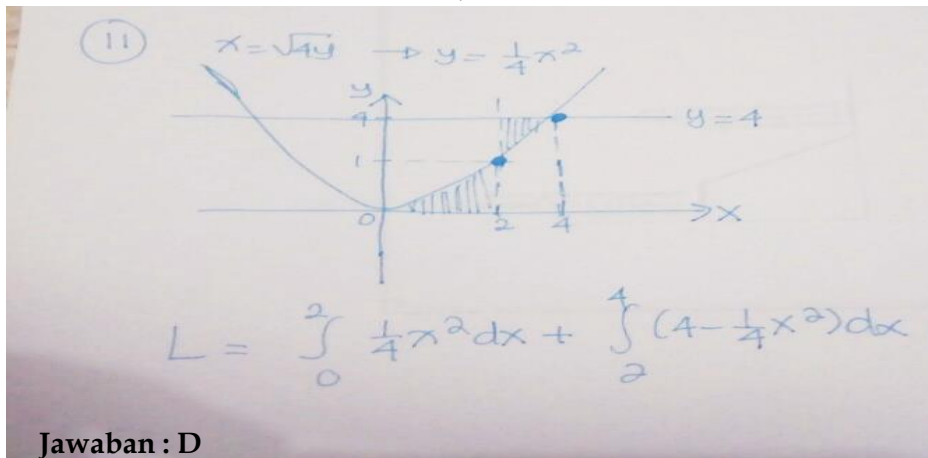 11 x = √4y → y = 1/4 x²
y
4 y = 4
1
0 2 4 x
L = ∫₀² 1/4 x² dx + ∫₂⁴ (4 - 1/4 x²) dx
Jawaban : D